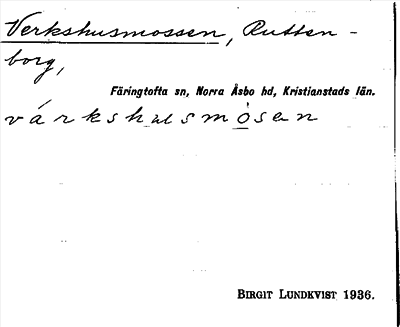 Verkshusmossen, Rutten-
borg,
Färingtofta sn, Norra Åsbo hd, Kristianstads län.
várkshusmòsen
BIRGIT LUNDKVIST 1936.